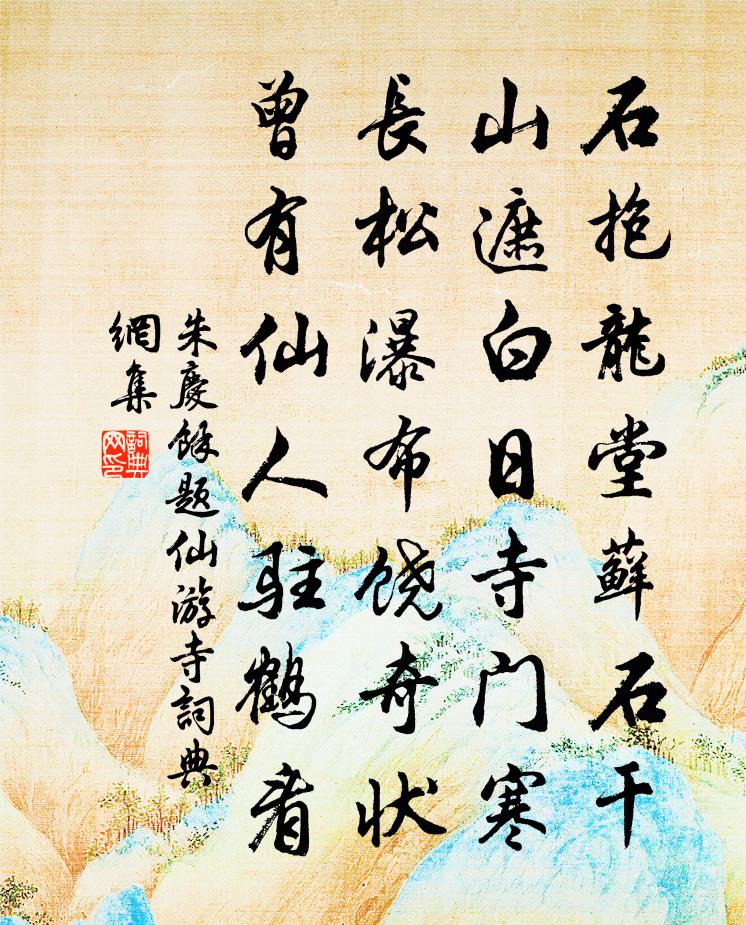 石抱龍堂蘚石干
山遮白日寺门寒
長松瀑布饒奇状
曾有仙人駐鶴看
朱慶餘题仙游寺詞典
網集
詞典
网印